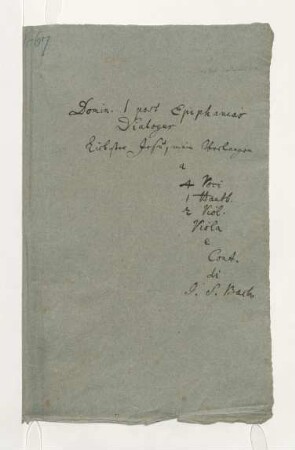 Domin. 1 post Epiphanias
Dialogus
Liebster Jesu, mein Verlangen
a
4 Voci
1 Hautb.
2 Viol.
Viola
e
Cont.
di
J. S. Bach